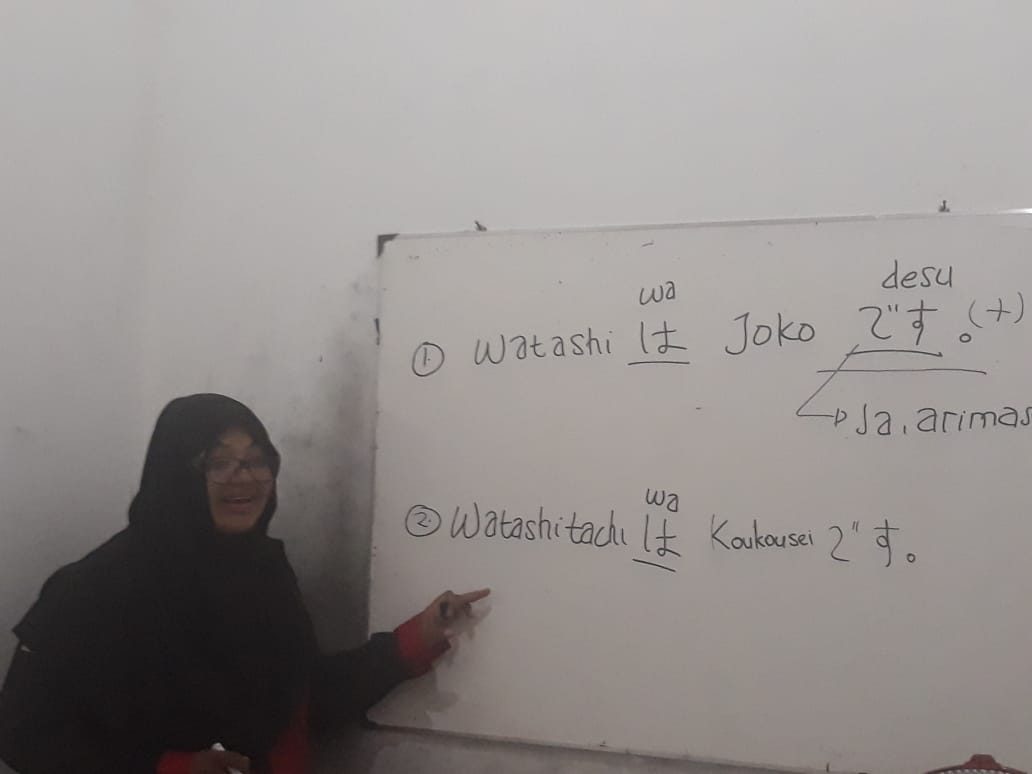 desu
wa
① Watashi は Joko です。(+)
Ja, arimas
wa
② Watashitachi は Koukousei です。